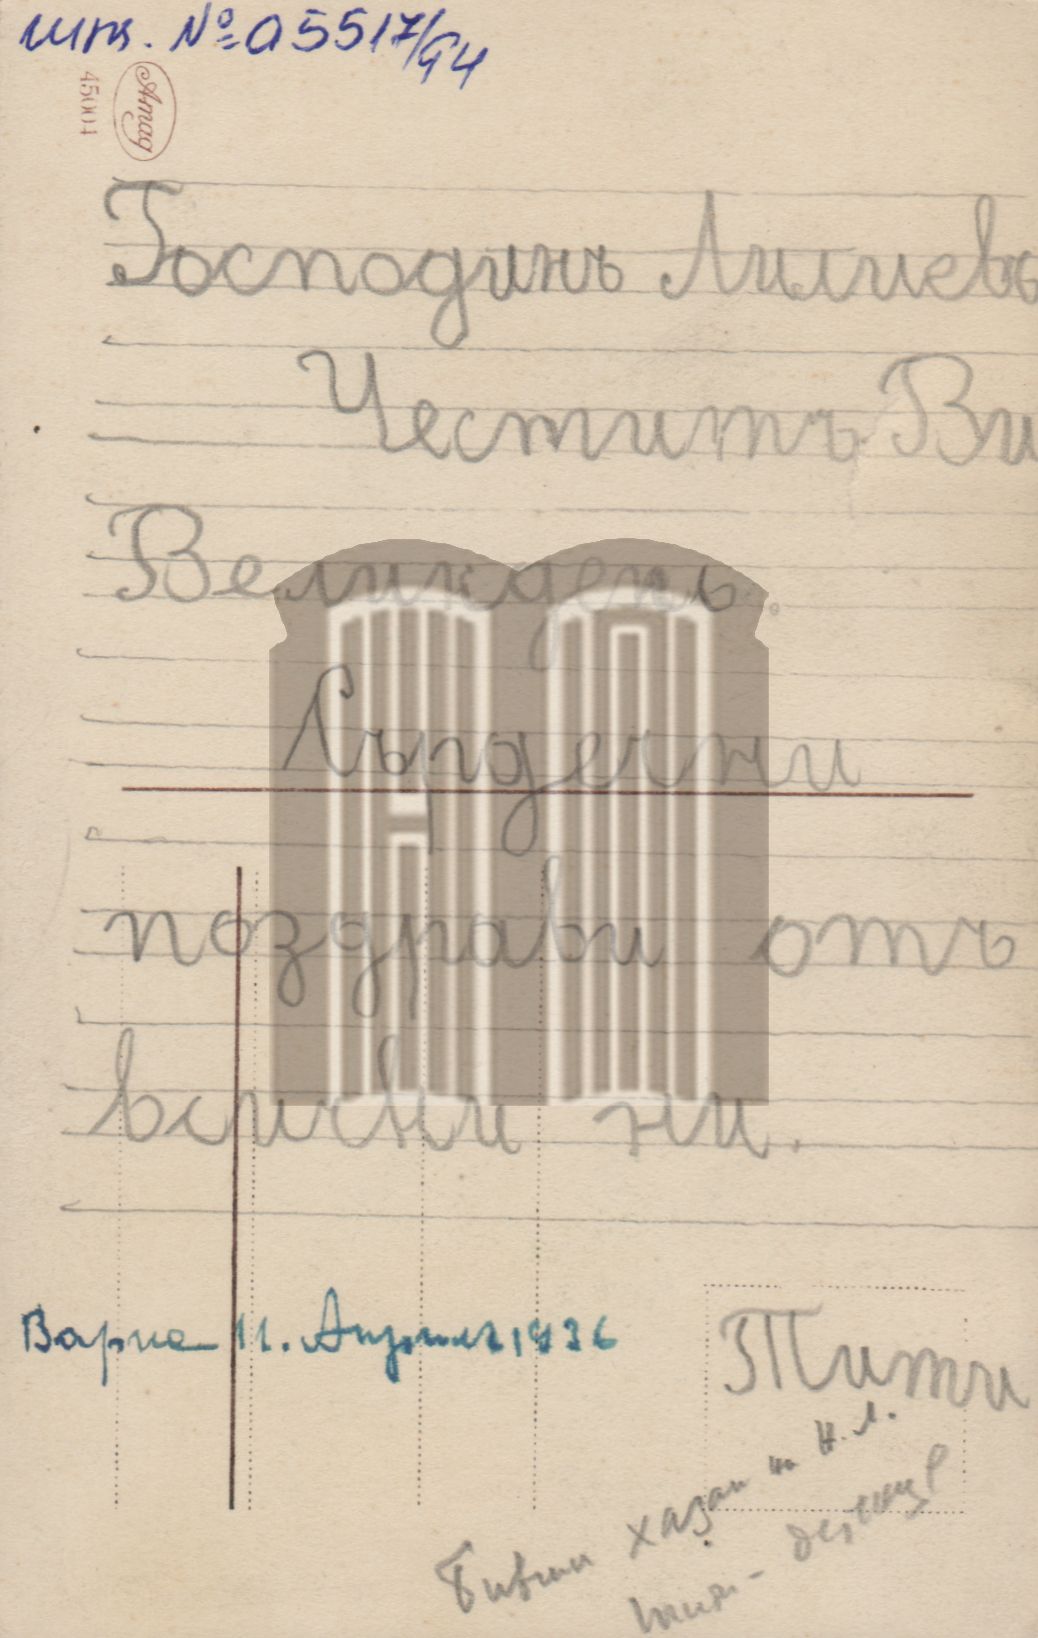 инв. № а 5517/94
Amag
45004
Господинъ Лилиевъ
Честитъ Ви
Великдень.
Сърдечни
поздрави отъ
всички ни.
Варна 11. Априлъ 1936
Тити
Бивши хазаи на Н. Л.